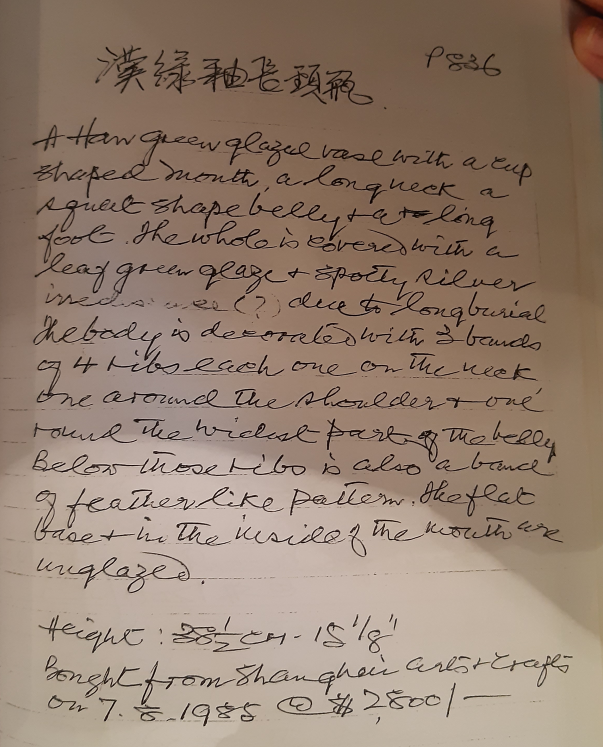 漢綠釉長頸瓶. P836
A Han green glazed vase with a cup
shaped mouth, a long neck a
squat shape belly + a long
foot. The whole is covered with a
leaf green glaze + spotty silver
(?) due to long burial
The body is decorated with 3 bands
of 4 ribs each one on the neck
one around the shoulder + one
round the widest part of the belly
Below those ribs is also a band
of feather like pattern. The flat
base + in the inside of the mouth are
unglazed.
Height: 38½ cm - 15 1/8"
Bought from Shanghai arts + crafts
on 7. 8. 1985 @ $2,800/—